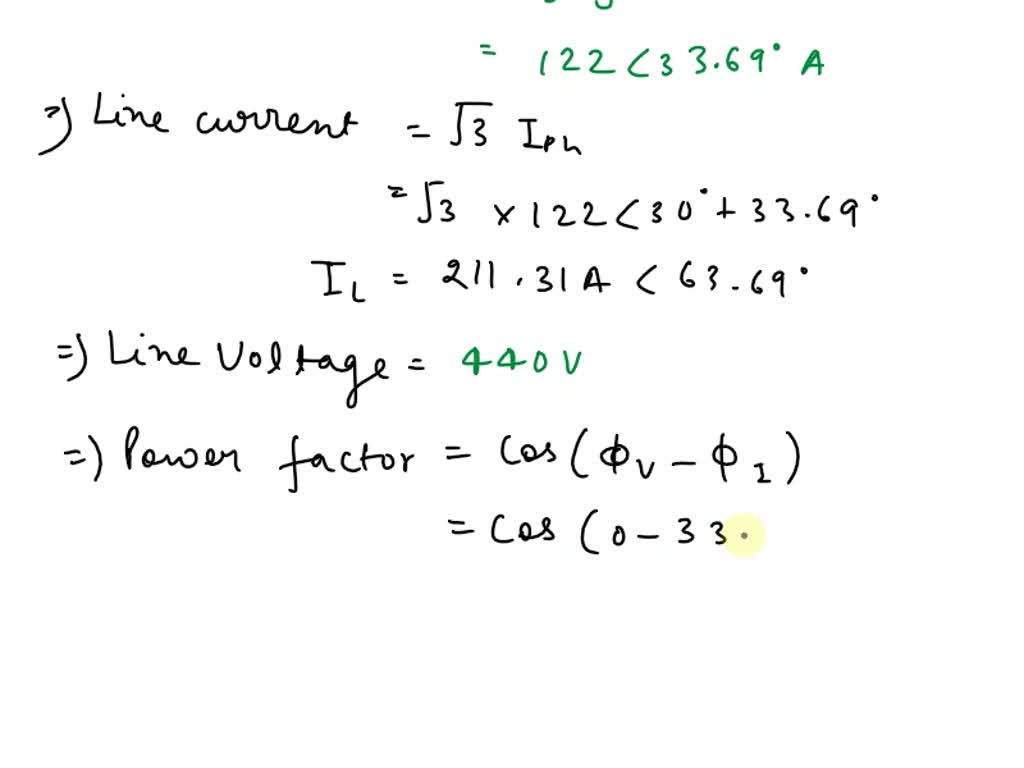 = 122 < 33.69° A
⇒) Line current = √3 Iph
= √3 × 122 < 30° + 33.69°
IL = 211.31 A < 63.69°
⇒) Line Voltage = 440 V
⇒) Power factor = Cos (ϕV − ϕI)
= Cos (0 − 33.